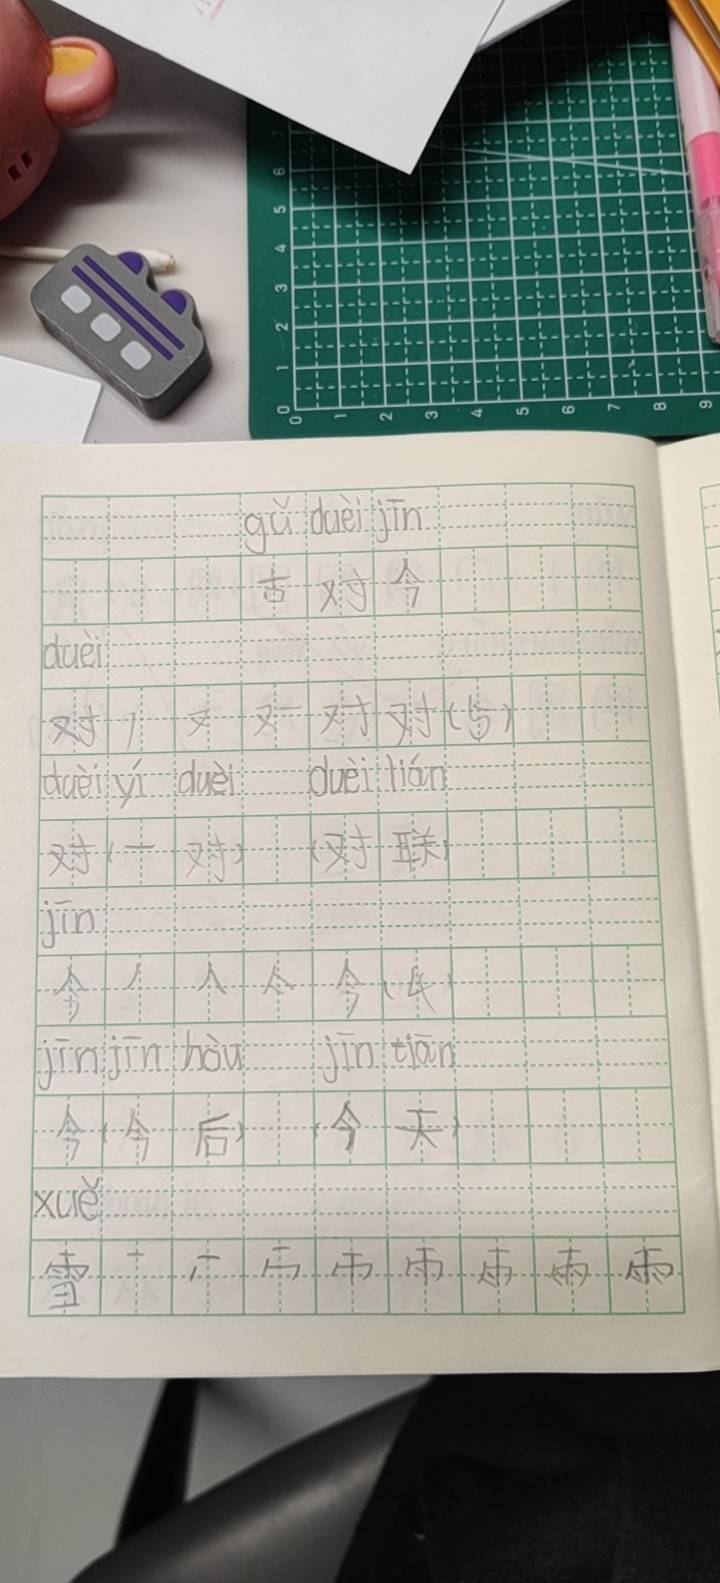 7
6
5
4
3
2
1
0
0 1 2 3 4 5 6 7 8 9
gǔ duèi jīn
古 对 今
duèi
对 フ 又 对 对 (5)
duèi yí duèi duèi lián
对 (一 对) (对 联)
jīn
今 人 亼 今 (4)
jīn jīn hòu jīn tiān
今 (今 后) (今 天)
xuě
雪